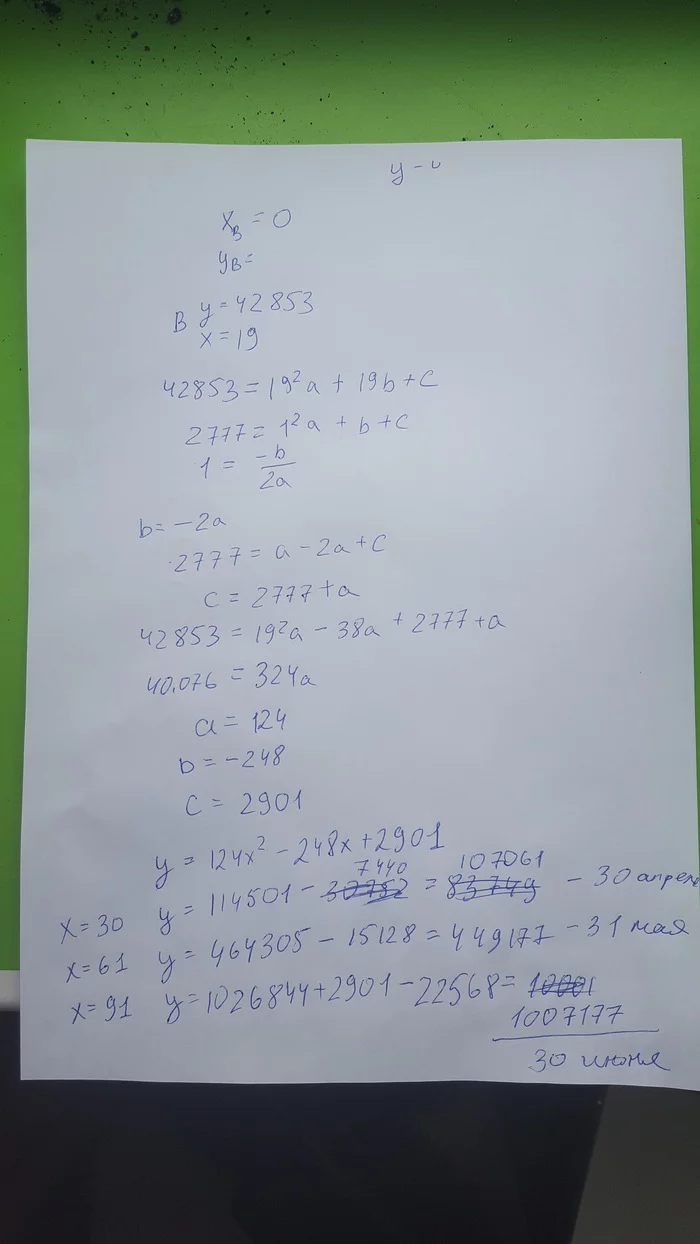 y -
x_B = 0
y_B =
B y = 42853
x = 19
42853 = 19²a + 19b + c
2777 = 1²a + b + c
1 = -b/2a
b = -2a
2777 = a - 2a + c
c = 2777 + a
42853 = 19²a - 38a + 2777 + a
40.076 = 324a
a = 124
b = -248
c = 2901
y = 124x² - 248x + 2901
7440 107061
x = 30 y = 114501 - 30752 = 83749 - 30 апреля
x = 61 y = 464305 - 15128 = 449177 - 31 мая
x = 91 y = 1026844 + 2901 - 22568 =
1007177
30 июня